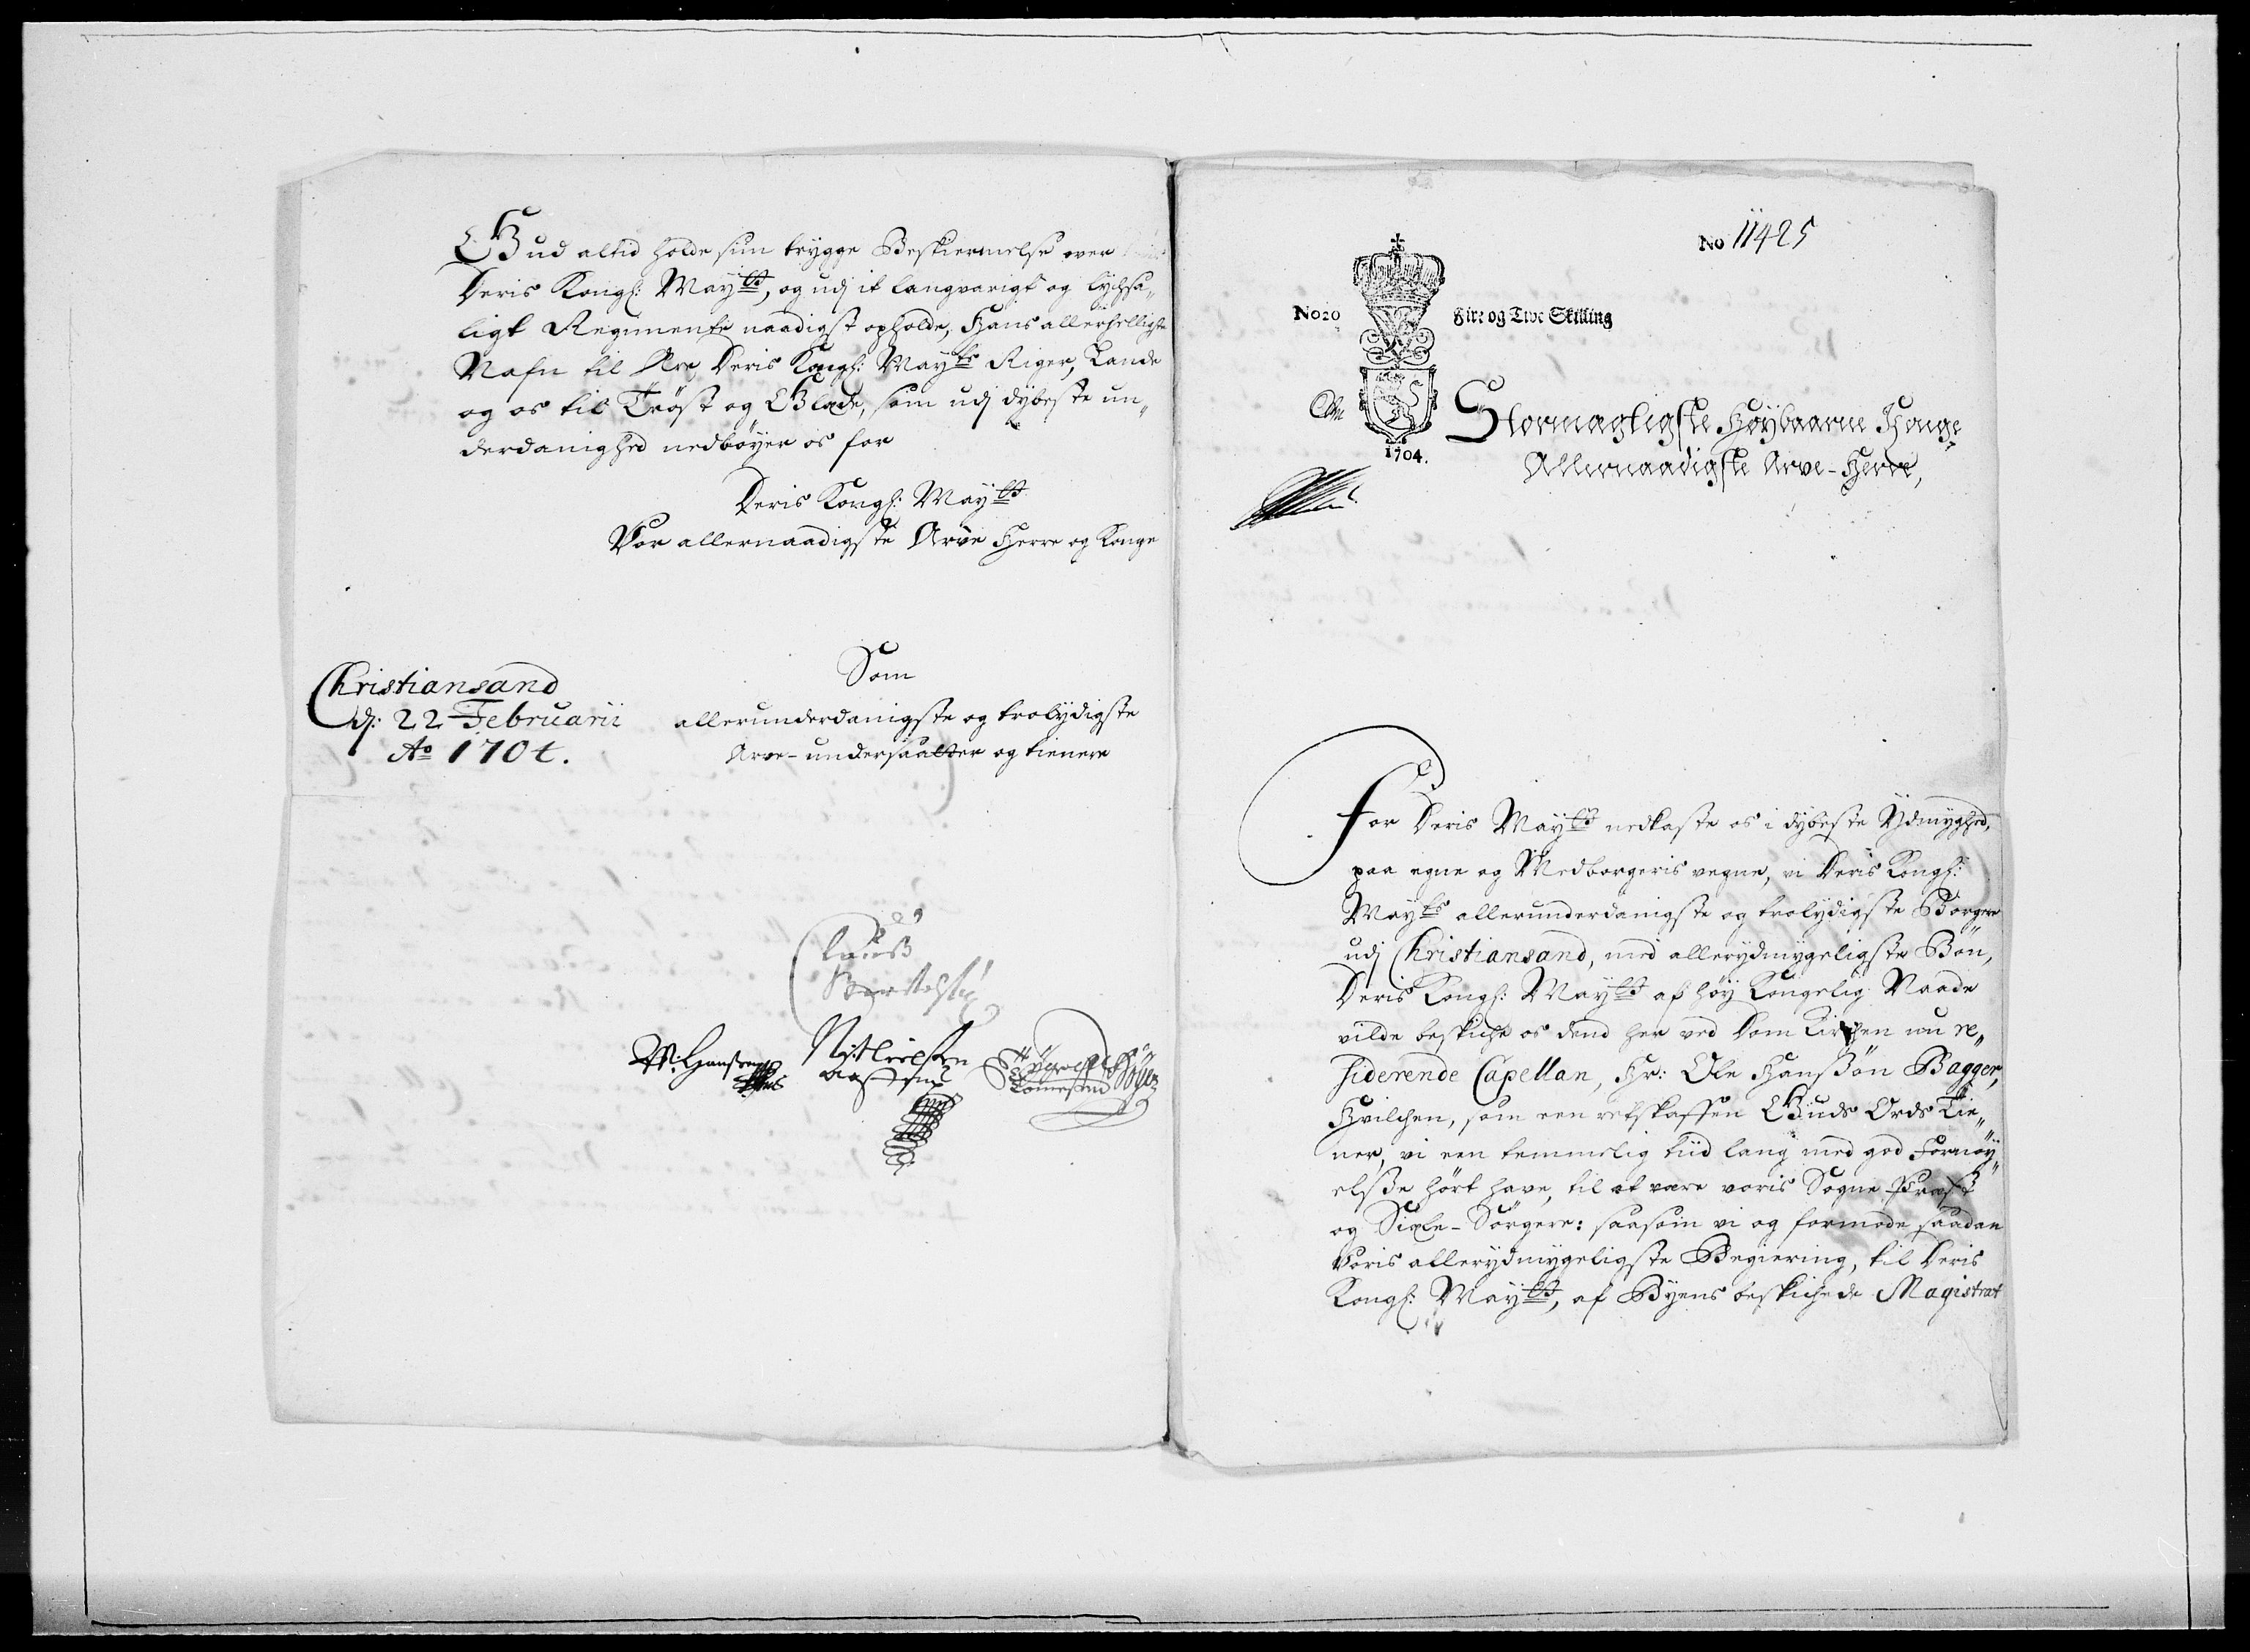 Gud altid holde siin trygge Beskiermelse over
Deris Kongl: Mayt, og udj it langvarigt og lychsa„
ligt Regimente naadigst opholde, Hans allerhelligste
Nafn til Ære, Deris Kongl: Mayts Riger, Lande
og os til Trøst og Glæde, som udj dybeste un„
derdanighed nedbøyer os for
Deris Kongl: Mayt
Vor allernaadigste Arve Herre og Konge
Christiansand
d: 22 Februarii
Ao 1704.
Som
allerunderdanigste og trolydigste
Arve-undersaatter og tienere
No 11425
No 20
Fire og Tive Skilling
1704.
Stormægtigste Høybaarne Konge
Allernaadigste Arve-Herre,
For Deris Mayt nedkaste os i dybeste Ydmyghed,
paa egne og Medborgeris vegne, vi Deris Kongl:
Mayts allerunderdanigste og trolydigste Borgere
udj Christiansand, med allerydmygeligste Bøn,
Deris Kongl: Mayt af høy Kongelig Naade
vilde beskiche os dend her ved Dom Kirchen nu re„
siderende Capellan, Hr: Ole Hanssøn Bagger,
Hvilchen, som een retskaffen Guds Ords Tie„
ner, vi een temmelig tiid lang med god Fornøy„
elsße hørt have, til at være voris Sogne Præst
og Siæle-Sørgere: saasom vi og formode saadan
Voris allerydmygeligste Begiering, til Deris
Kongl: Mayt, af Byens beskichede Magistrat